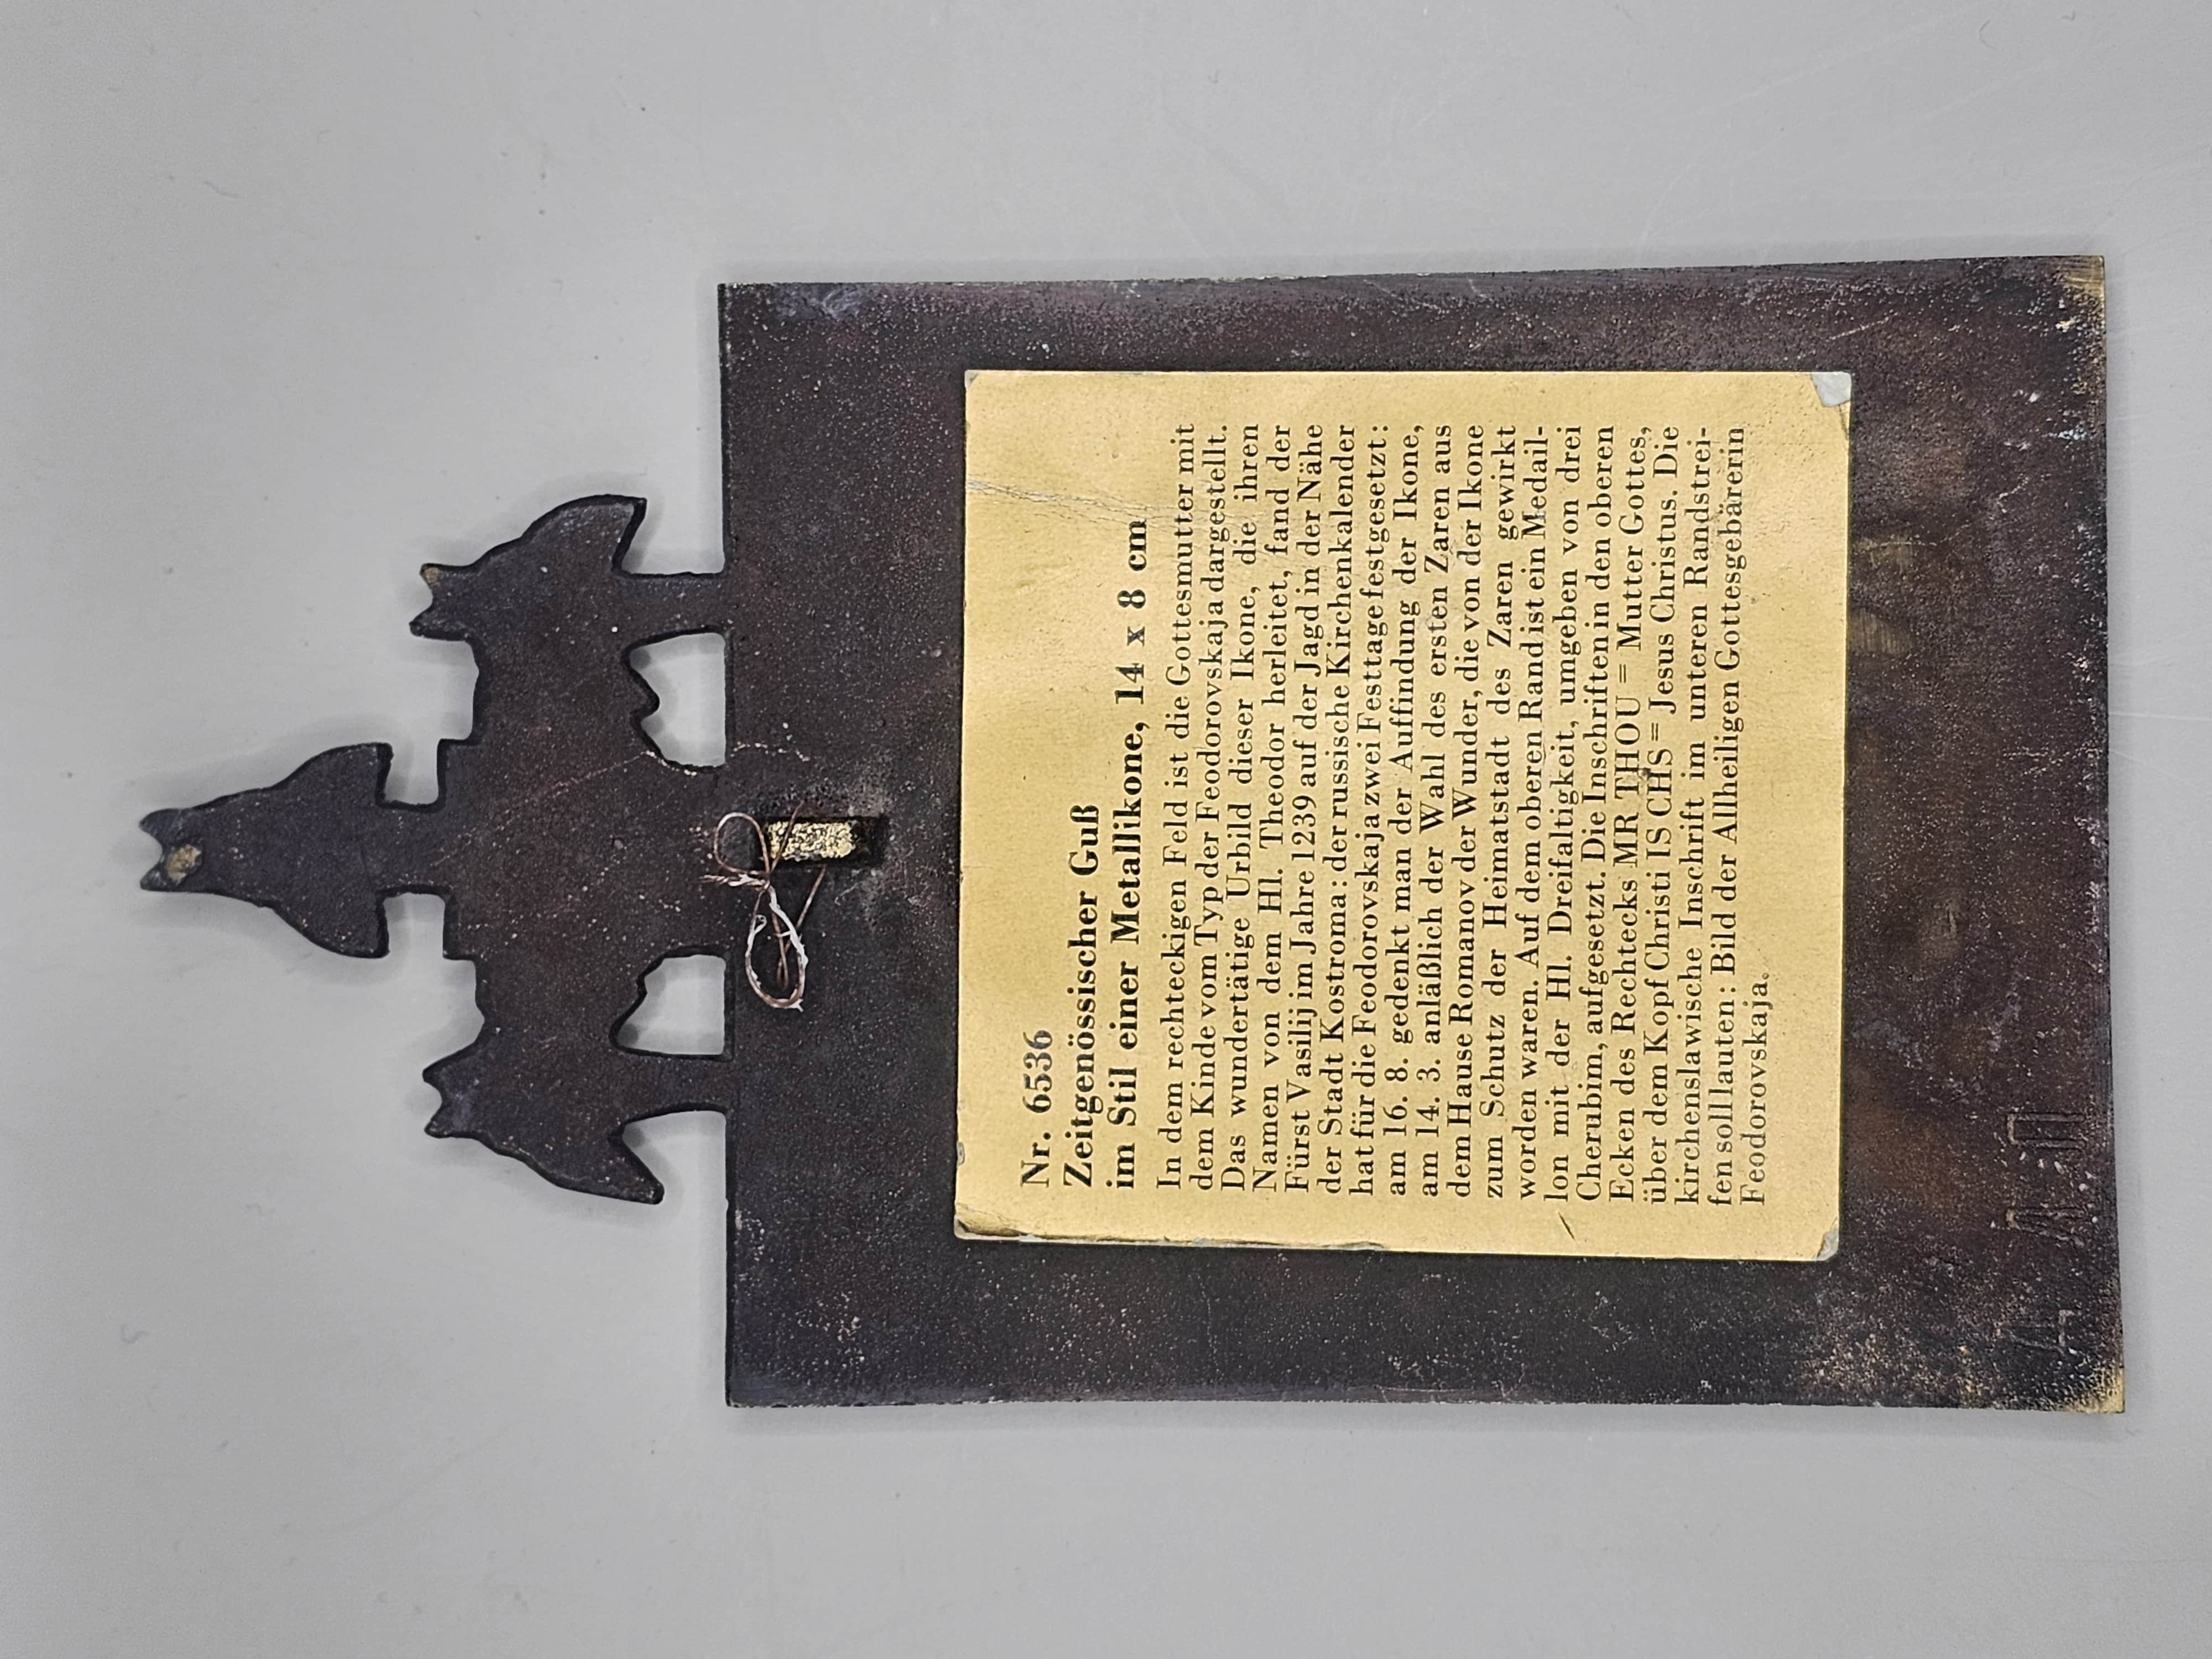 Nr. 6536
Zeitgenössischer Guß
im Stil einer Metallikone, 14 x 8 cm
In dem rechteckigen Feld ist die Gottesmutter mit
dem Kinde vom Typ der Feodorovskaja dargestellt.
Das wundertätige Urbild dieser Ikone, die ihren
Namen von dem Hl. Theodor herleitet, fand der
Fürst Vasilij im Jahre 1239 auf der Jagd in der Nähe
der Stadt Kostroma: der russische Kirchenkalender
hat für die Feodorovskaja zwei Festtage festgesetzt:
am 16. 8. gedenkt man der Auffindung der Ikone,
am 14. 3. anläßlich der Wahl des ersten Zaren aus
dem Hause Romanov der Wunder, die von der Ikone
zum Schutz der Heimatstadt des Zaren gewirkt
worden waren. Auf dem oberen Rand ist ein Medail-
lon mit der Hl. Dreifaltigkeit, umgeben von drei
Cherubim, aufgesetzt. Die Inschriften in den oberen
Ecken des Rechtecks MR THOU = Mutter Gottes,
über dem Kopf Christi IS CHS = Jesus Christus. Die
kirchenslawische Inschrift im unteren Randstrei-
fen soll lauten: Bild der Allheiligen Gottesgebärerin
Feodorovskaja.